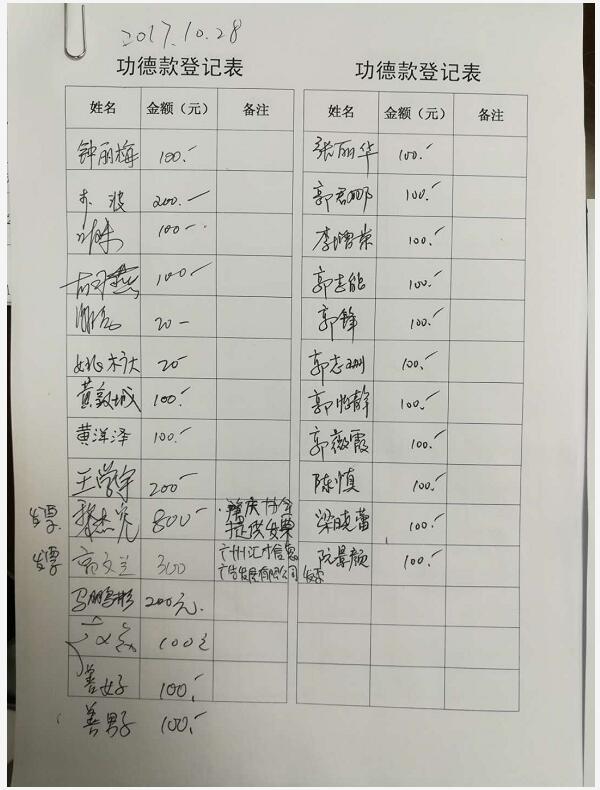 2017.10.28
功德款登记表
姓名 金额（元） 备注
钟丽梅 100.-
波 200.-
100.-
燕 100-
20-
20-
黄敦城 100.-
黄洋泽 100.-
王学宇 200-
发票 杰 800- 提供发票
发票 高文兰 300 广州汇 信息
广告发展有限公司 发票
马鹏彬 200元.
100元
善女子 100.-
善男子 100.-
功德款登记表
姓名 金额（元） 备注
张丽华 100.-
郭君 100.-
李增荣 100.-
郭志能 100.-
郭锋 100.-
郭志 100.-
郭 静 100.-
郭薇霞 100.-
陈慎 100.-
梁晓蕾 100.-
阮景颜 100.-